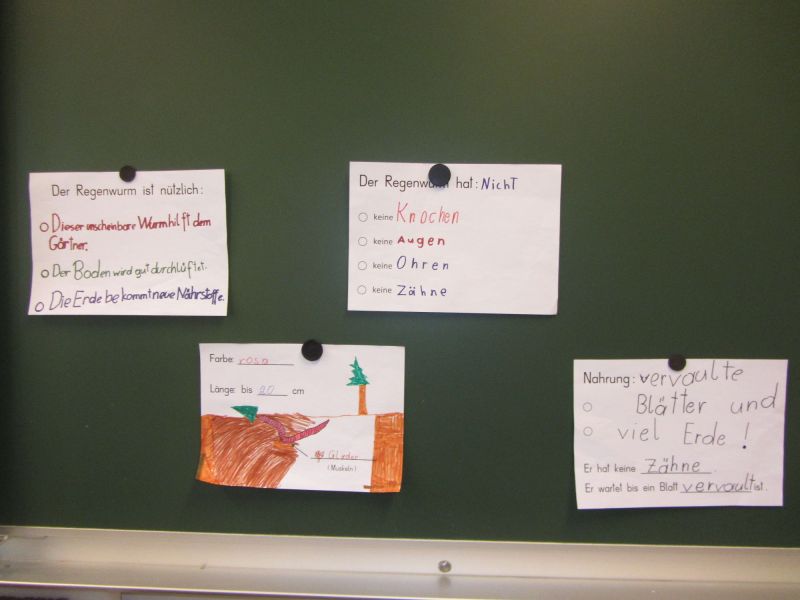 Der Regenwurm ist nützlich:
Dieser unscheinbare Wurm hilft dem
Gärtner.
Der Boden wird gut durchlüftet.
Die Erde bekommt neue Nährstoffe.
Der Regenwurm hat: Nicht
keine Knochen
keine Augen
keine Ohren
keine Zähne
Farbe: rosa
Länge: bis 20 cm
Glieder
(Muskeln)
Nahrung: vervaulte
Blätter und
viel Erde!
Er hat keine Zähne.
Er wartet bis ein Blatt vervault ist.